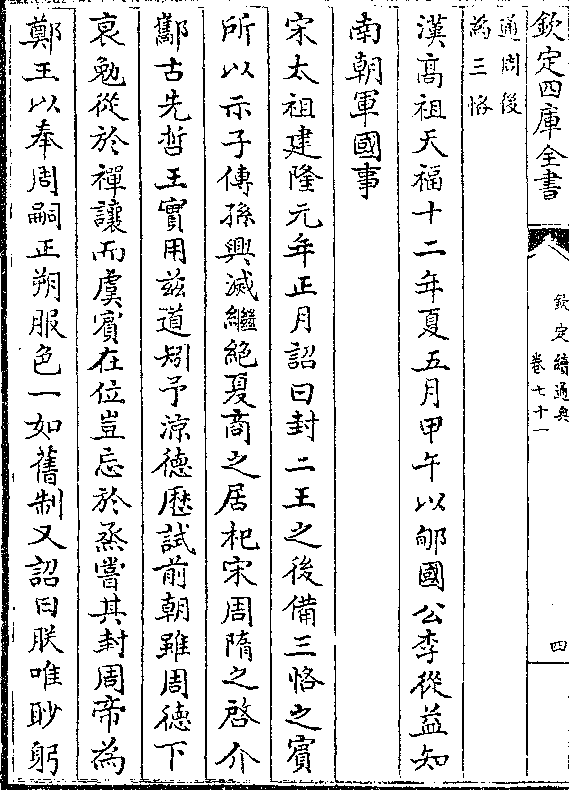 欽定四庫全書
欽定續通典
卷七十一
四
通周後
為三恪
漢高祖天福十二年夏五月甲午以郇國公李從益知
南朝軍國事
宋太祖建隆元年正月詔曰封二王之後備三恪之賓
所以示子傳孫興滅繼絶夏商之居杞宋周隋之啓介
酅古先哲王實用兹道矧予涼德歷試前朝雖周德下
衰勉從於禪讓而虞賓在位豈忘於烝嘗其封周帝為
鄭王以奉周嗣正朔服色一如舊制又詔曰朕唯眇躬